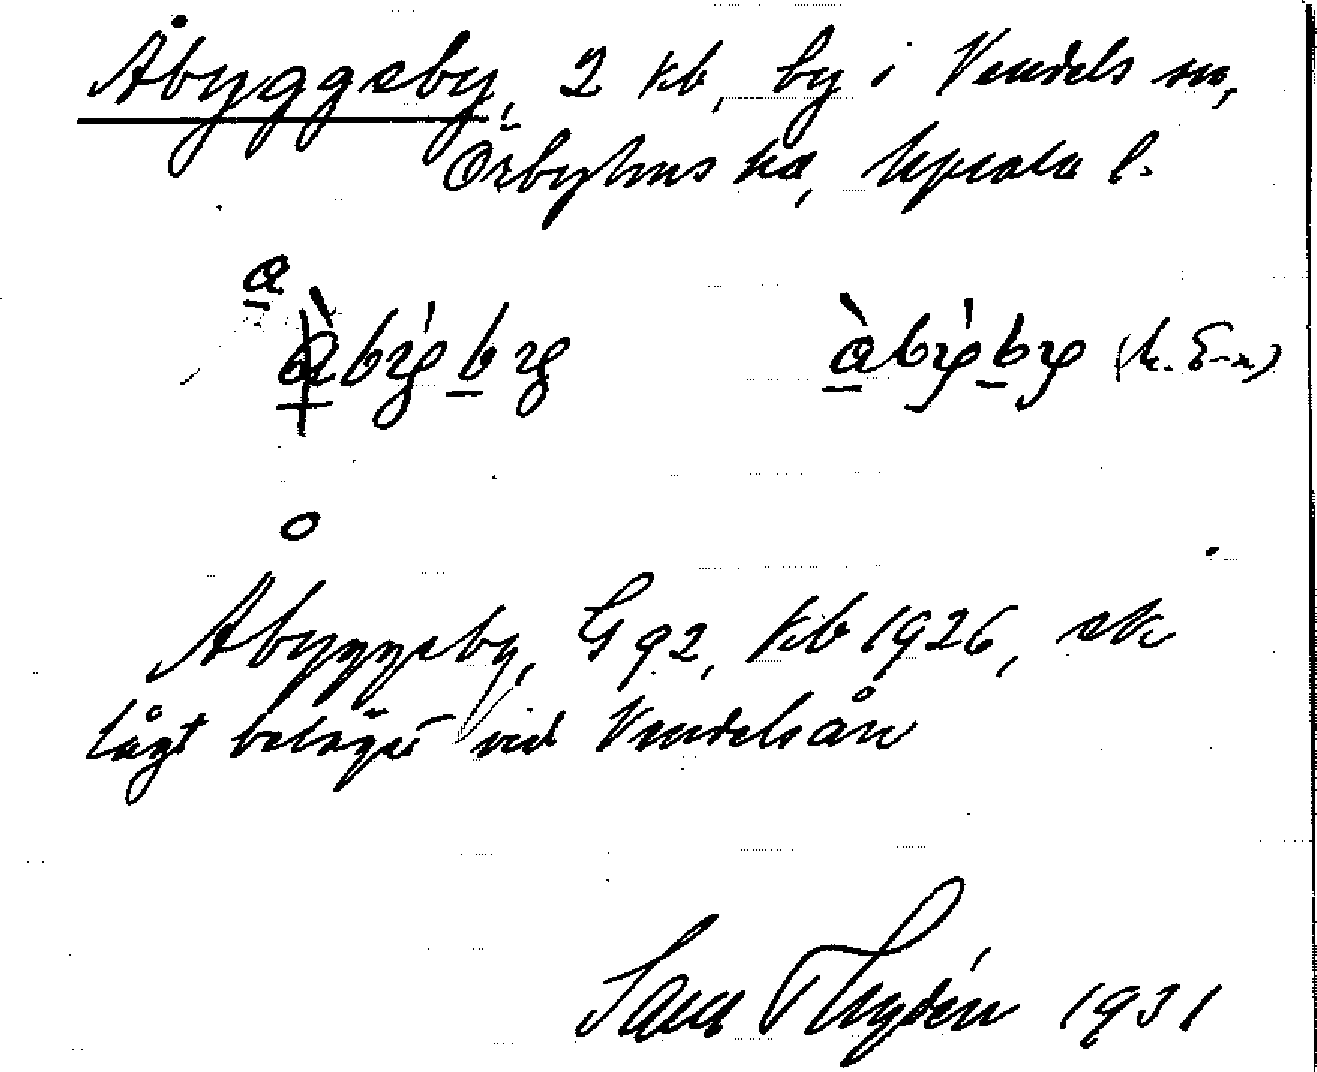 Åbyggeby, 2 kb, by i Vendels sn,
Örbyhus hd, Upsala l.
a
àbyby àbýby
Åbyggeby, G 92, kb 1926, ek
lågt beläget vid Vendelsån
Thydén 1931